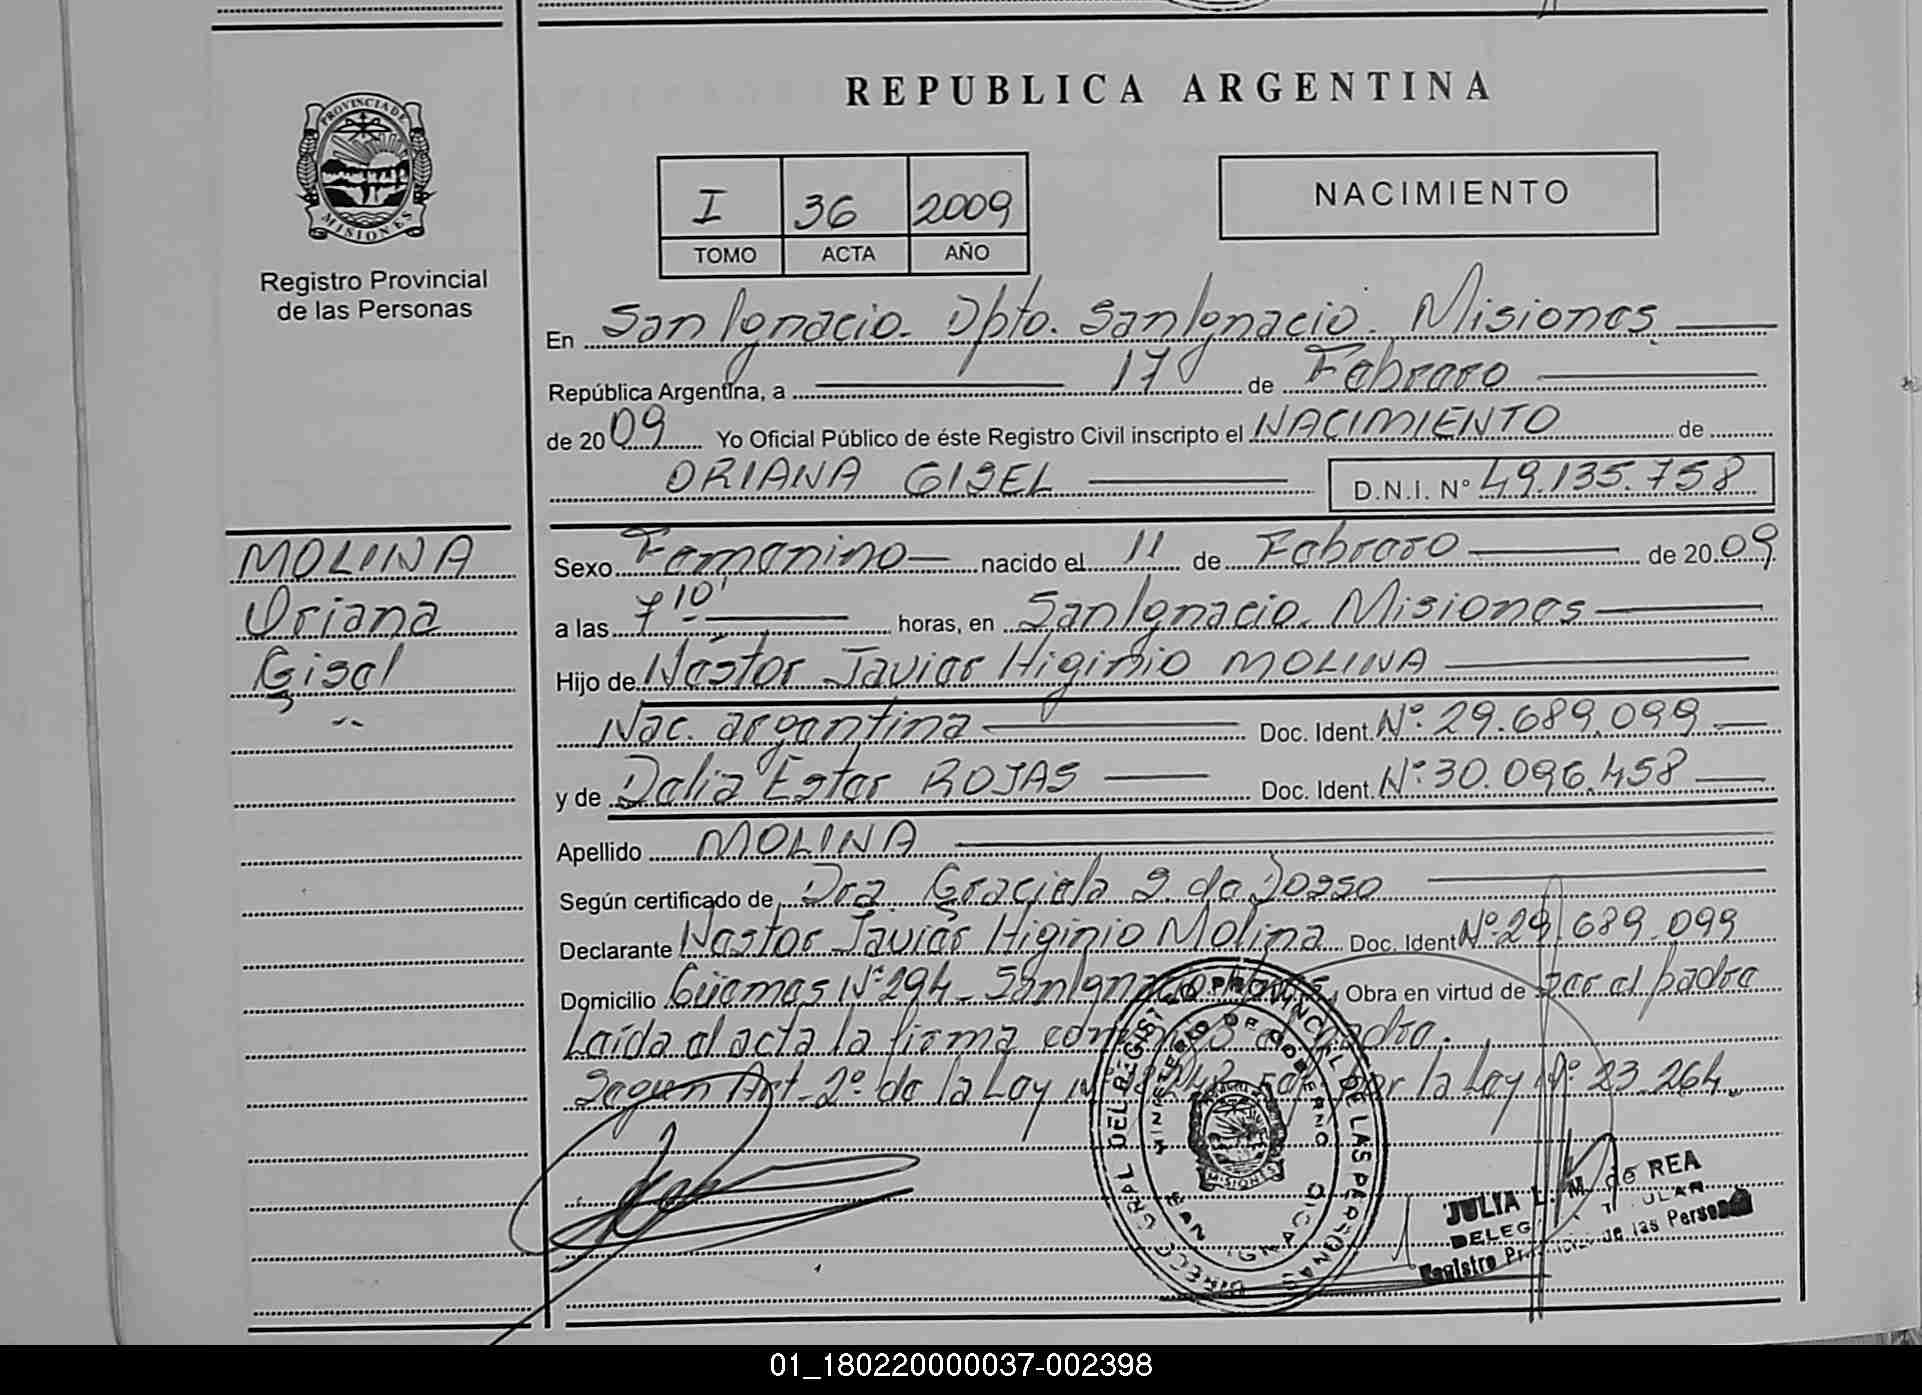 REPUBLICA ARGENTINA
PROVINCIA DE
MISIONES
Registro Provincial
de las Personas
I 36 2009
TOMO ACTA AÑO
NACIMIENTO
En San Ignacio. Dpto. San Ignacio. Misiones
República Argentina, a 17 de Febrero
de 2009 Yo Oficial Público de éste Registro Civil inscripto el NACIMIENTO de
ORIANA GISEL D.N.I. N° 49.135.758
MOLINA
Oriana
Gisel
Sexo Femenino nacido el 11 de Febrero de 2009
a las 7 10' horas, en San Ignacio. Misiones
Hijo de Néstor Javier Higinio MOLINA
Nac. argentina Doc. Ident. N°: 29.689.099
y de Delia Ester ROJAS Doc. Ident. N°: 30.096.458
Apellido MOLINA
Según certificado de Dra. Graciela S. de Dosso
Declarante Nestor Javier Higinio Molina Doc. Ident N° 29.689.099
Domicilio Güemes N° 294 - San Ignacio Obra en virtud de ser el padre
Leída el acta la firma el padre.
Segun Art. 2° de la Ley N° por la Ley N° 23.264
DIRECC. GRAL. DEL REGISTRO PROVINCIAL DE LAS PERSONAS
MINISTERIO DE GOBIERNO
SAN IGNACIO
MISIONES
JULIA L. M. de REA
DELEG TITULAR
Registro Provincial de las Personas
01_180220000037-002398